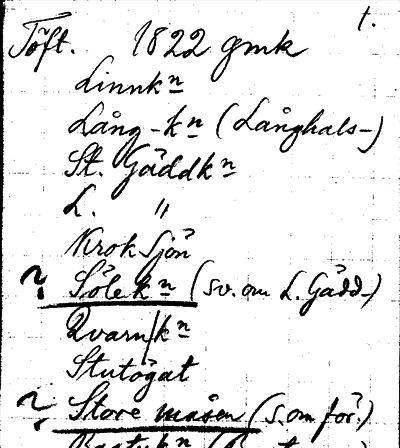 t.
Töft. 1822 gmk
Linnkn
Lång-kn (Långhals-)
St. Gäddkn
L. "
Kroksjön
? Sölekn (sv. om L. Gädd-)
Qvarn/kn
Stutögat
? Store måsen (s. om för.)